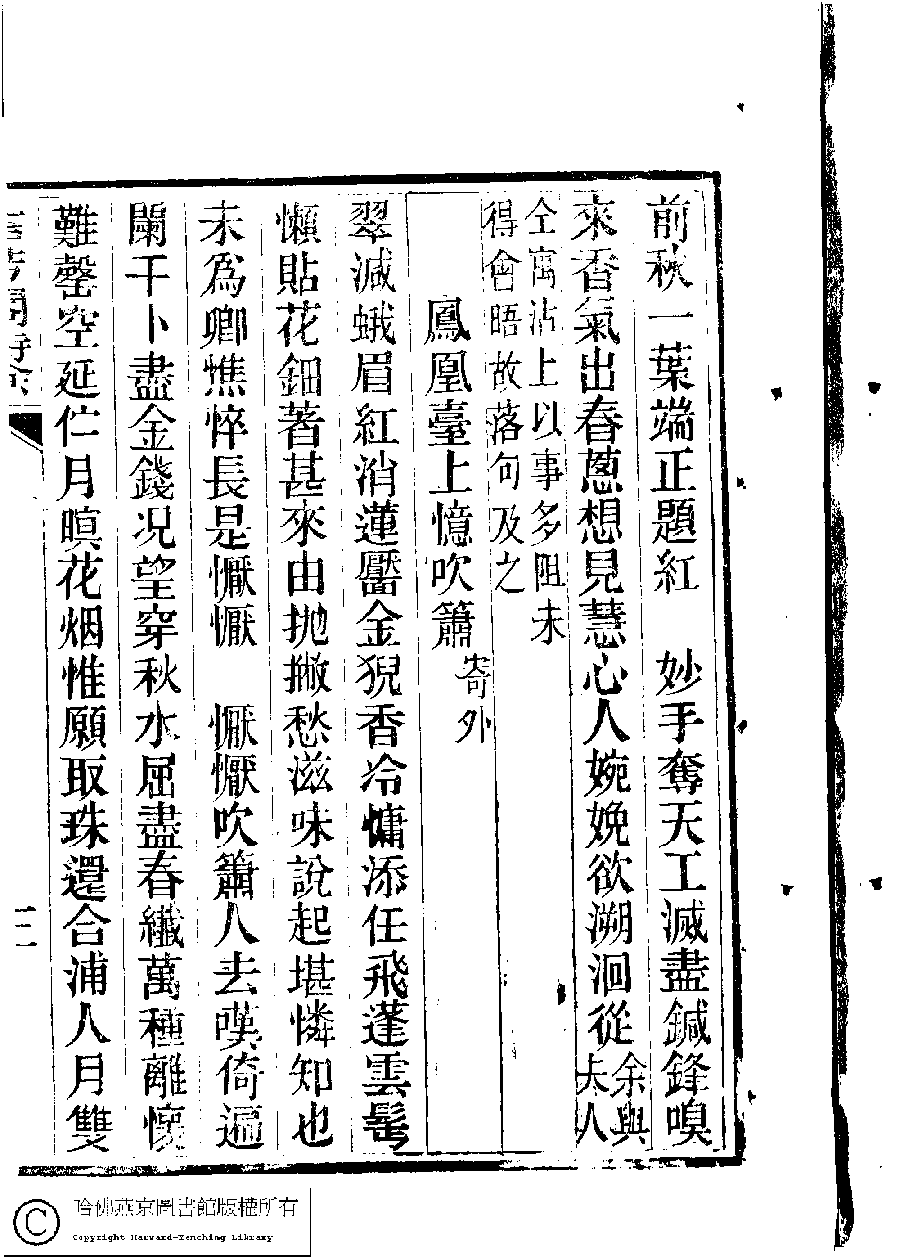 前秋一葉端正題紅　妙手奪天工滅盡鍼鋒嗅
來香氣出春蔥想見慧心人婉娩欲溯洄從余與夫人
仝寓沽上以事多阻未
得會晤故落句及之
鳳凰臺上憶吹簫寄外
翠減蛾眉紅消蓮靨金猊香冷慵添任飛蓬雲髩
懶貼花鈿著甚來由拋撇愁滋味說起堪憐知也
未爲卿憔悴長是懨懨　懨懨吹簫人去嘆倚遍
闌干卜盡金錢况望穿秋水屈盡春纖萬種離懷
難罄空延伫月暝花烟惟願取珠還合浦人月雙
三
哈佛燕京圖書館版權所有
Copyright Harvard-Yenching Library